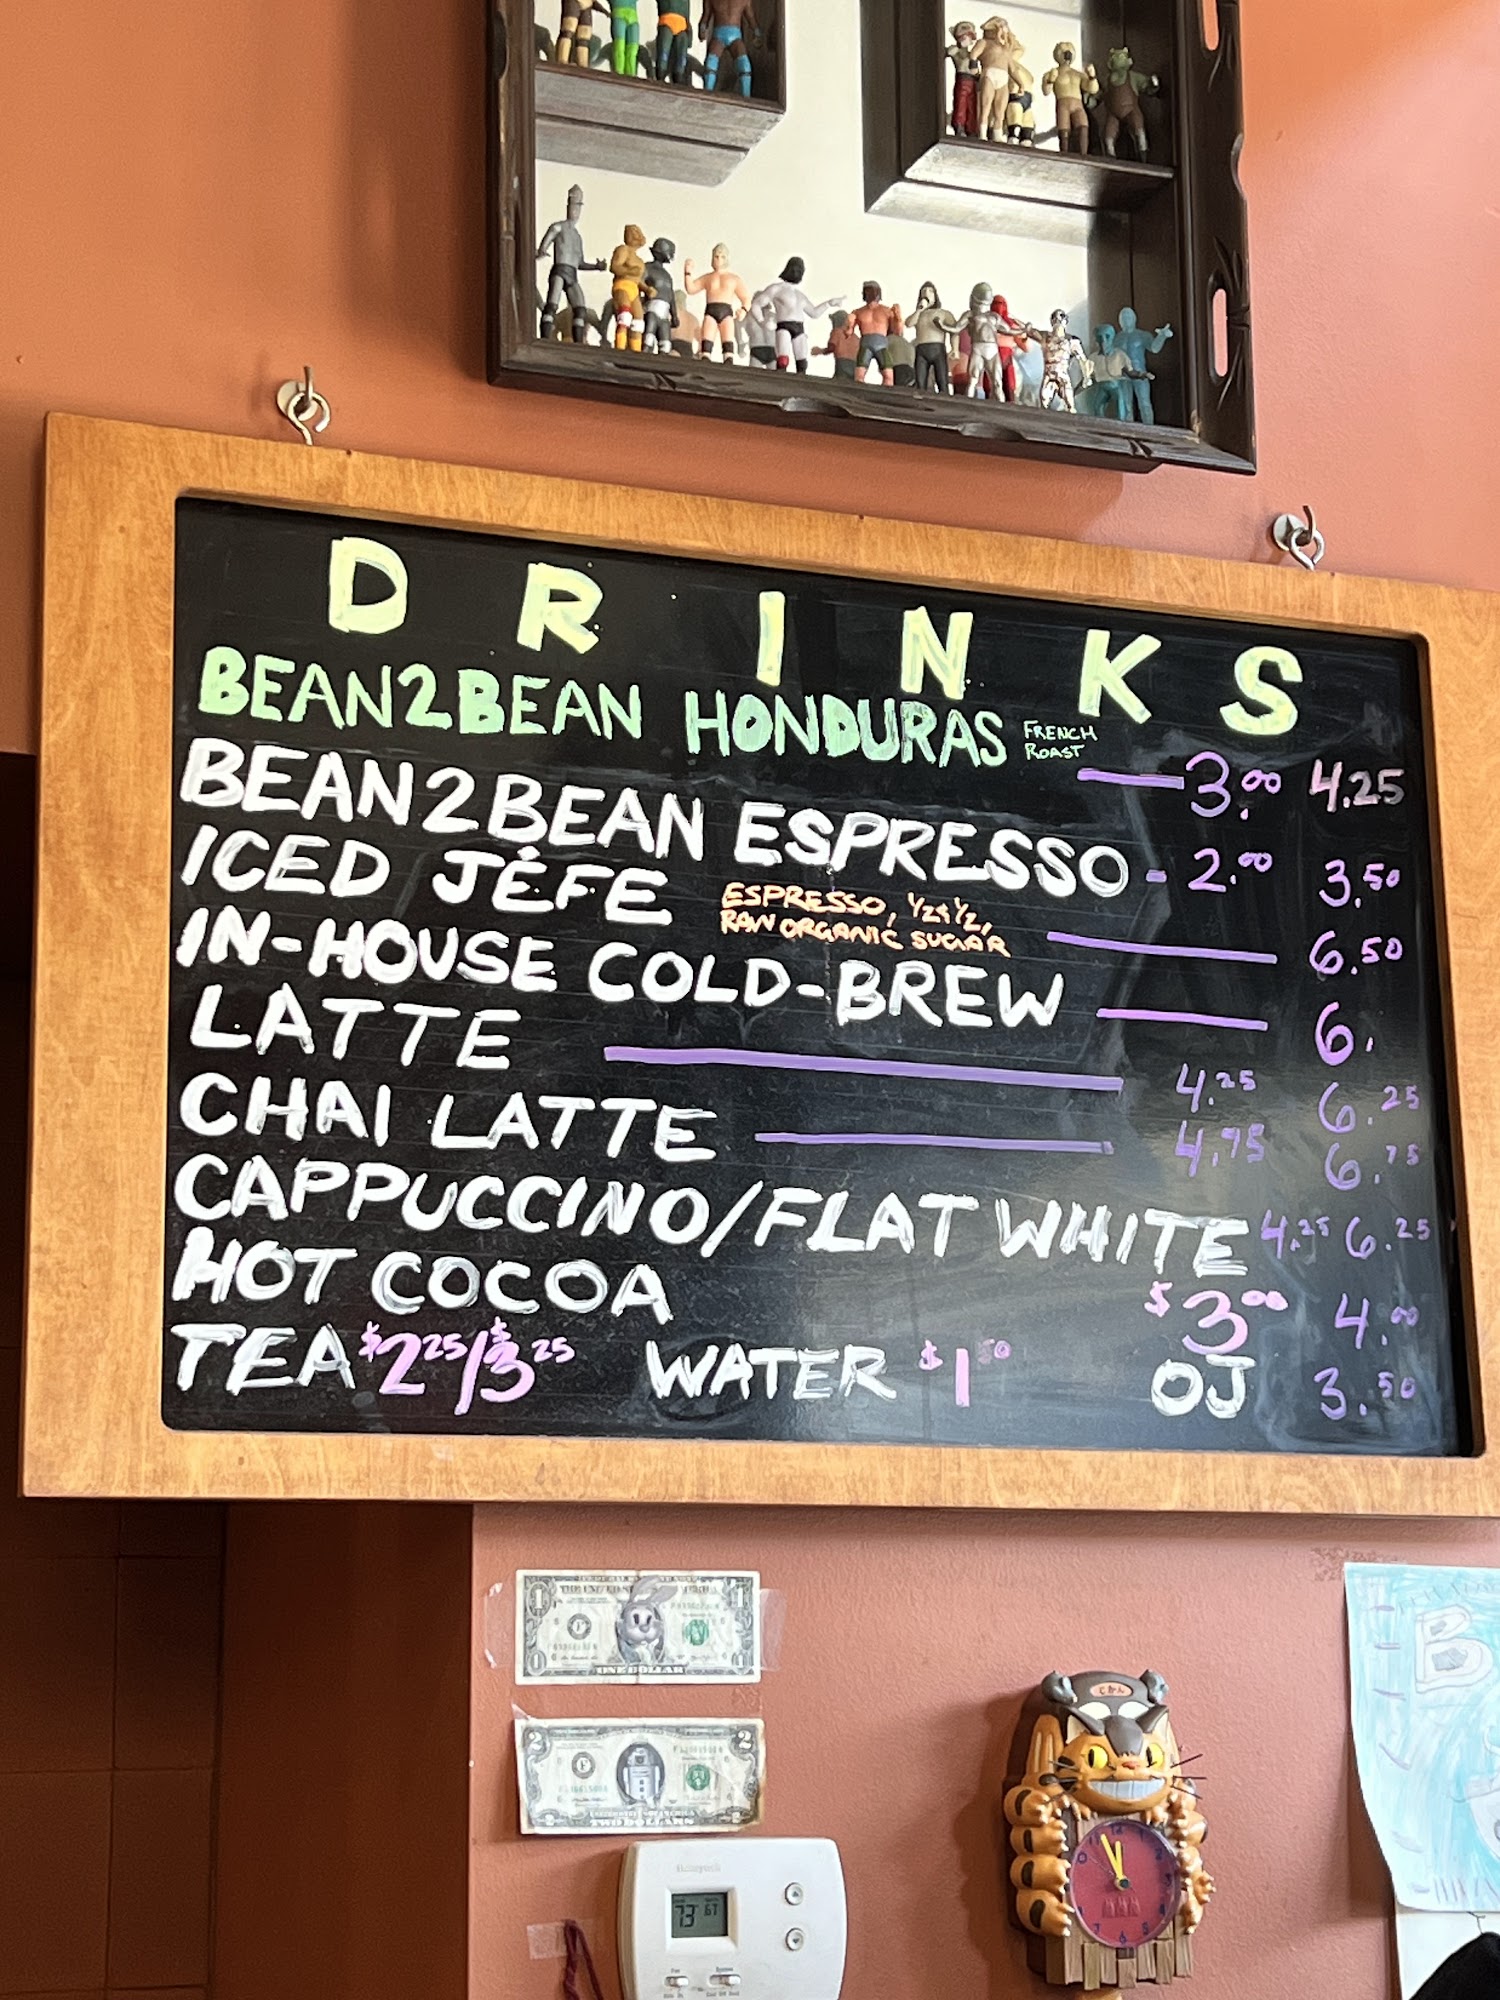 D R I N K S
BEAN2BEAN HONDURAS FRENCH ROAST 3.00 4.25
BEAN2BEAN ESPRESSO - 2.00 3.50
ICED JEFE ESPRESSO, 1/2&1/2, RAW ORGANIC SUGAR 6.50
IN-HOUSE COLD-BREW 6.
LATTE 4.25 6.25
CHAI LATTE 4.75 6.75
CAPPUCCINO/FLAT WHITE 4.25 6.25
HOT COCOA $3.00 4.00
TEA $2.25/$3.25 WATER $1.50 OJ 3.50
1 1
ONE DOLLAR
2 2
TWO DOLLARS
Honeywell
73 67
じかん
12